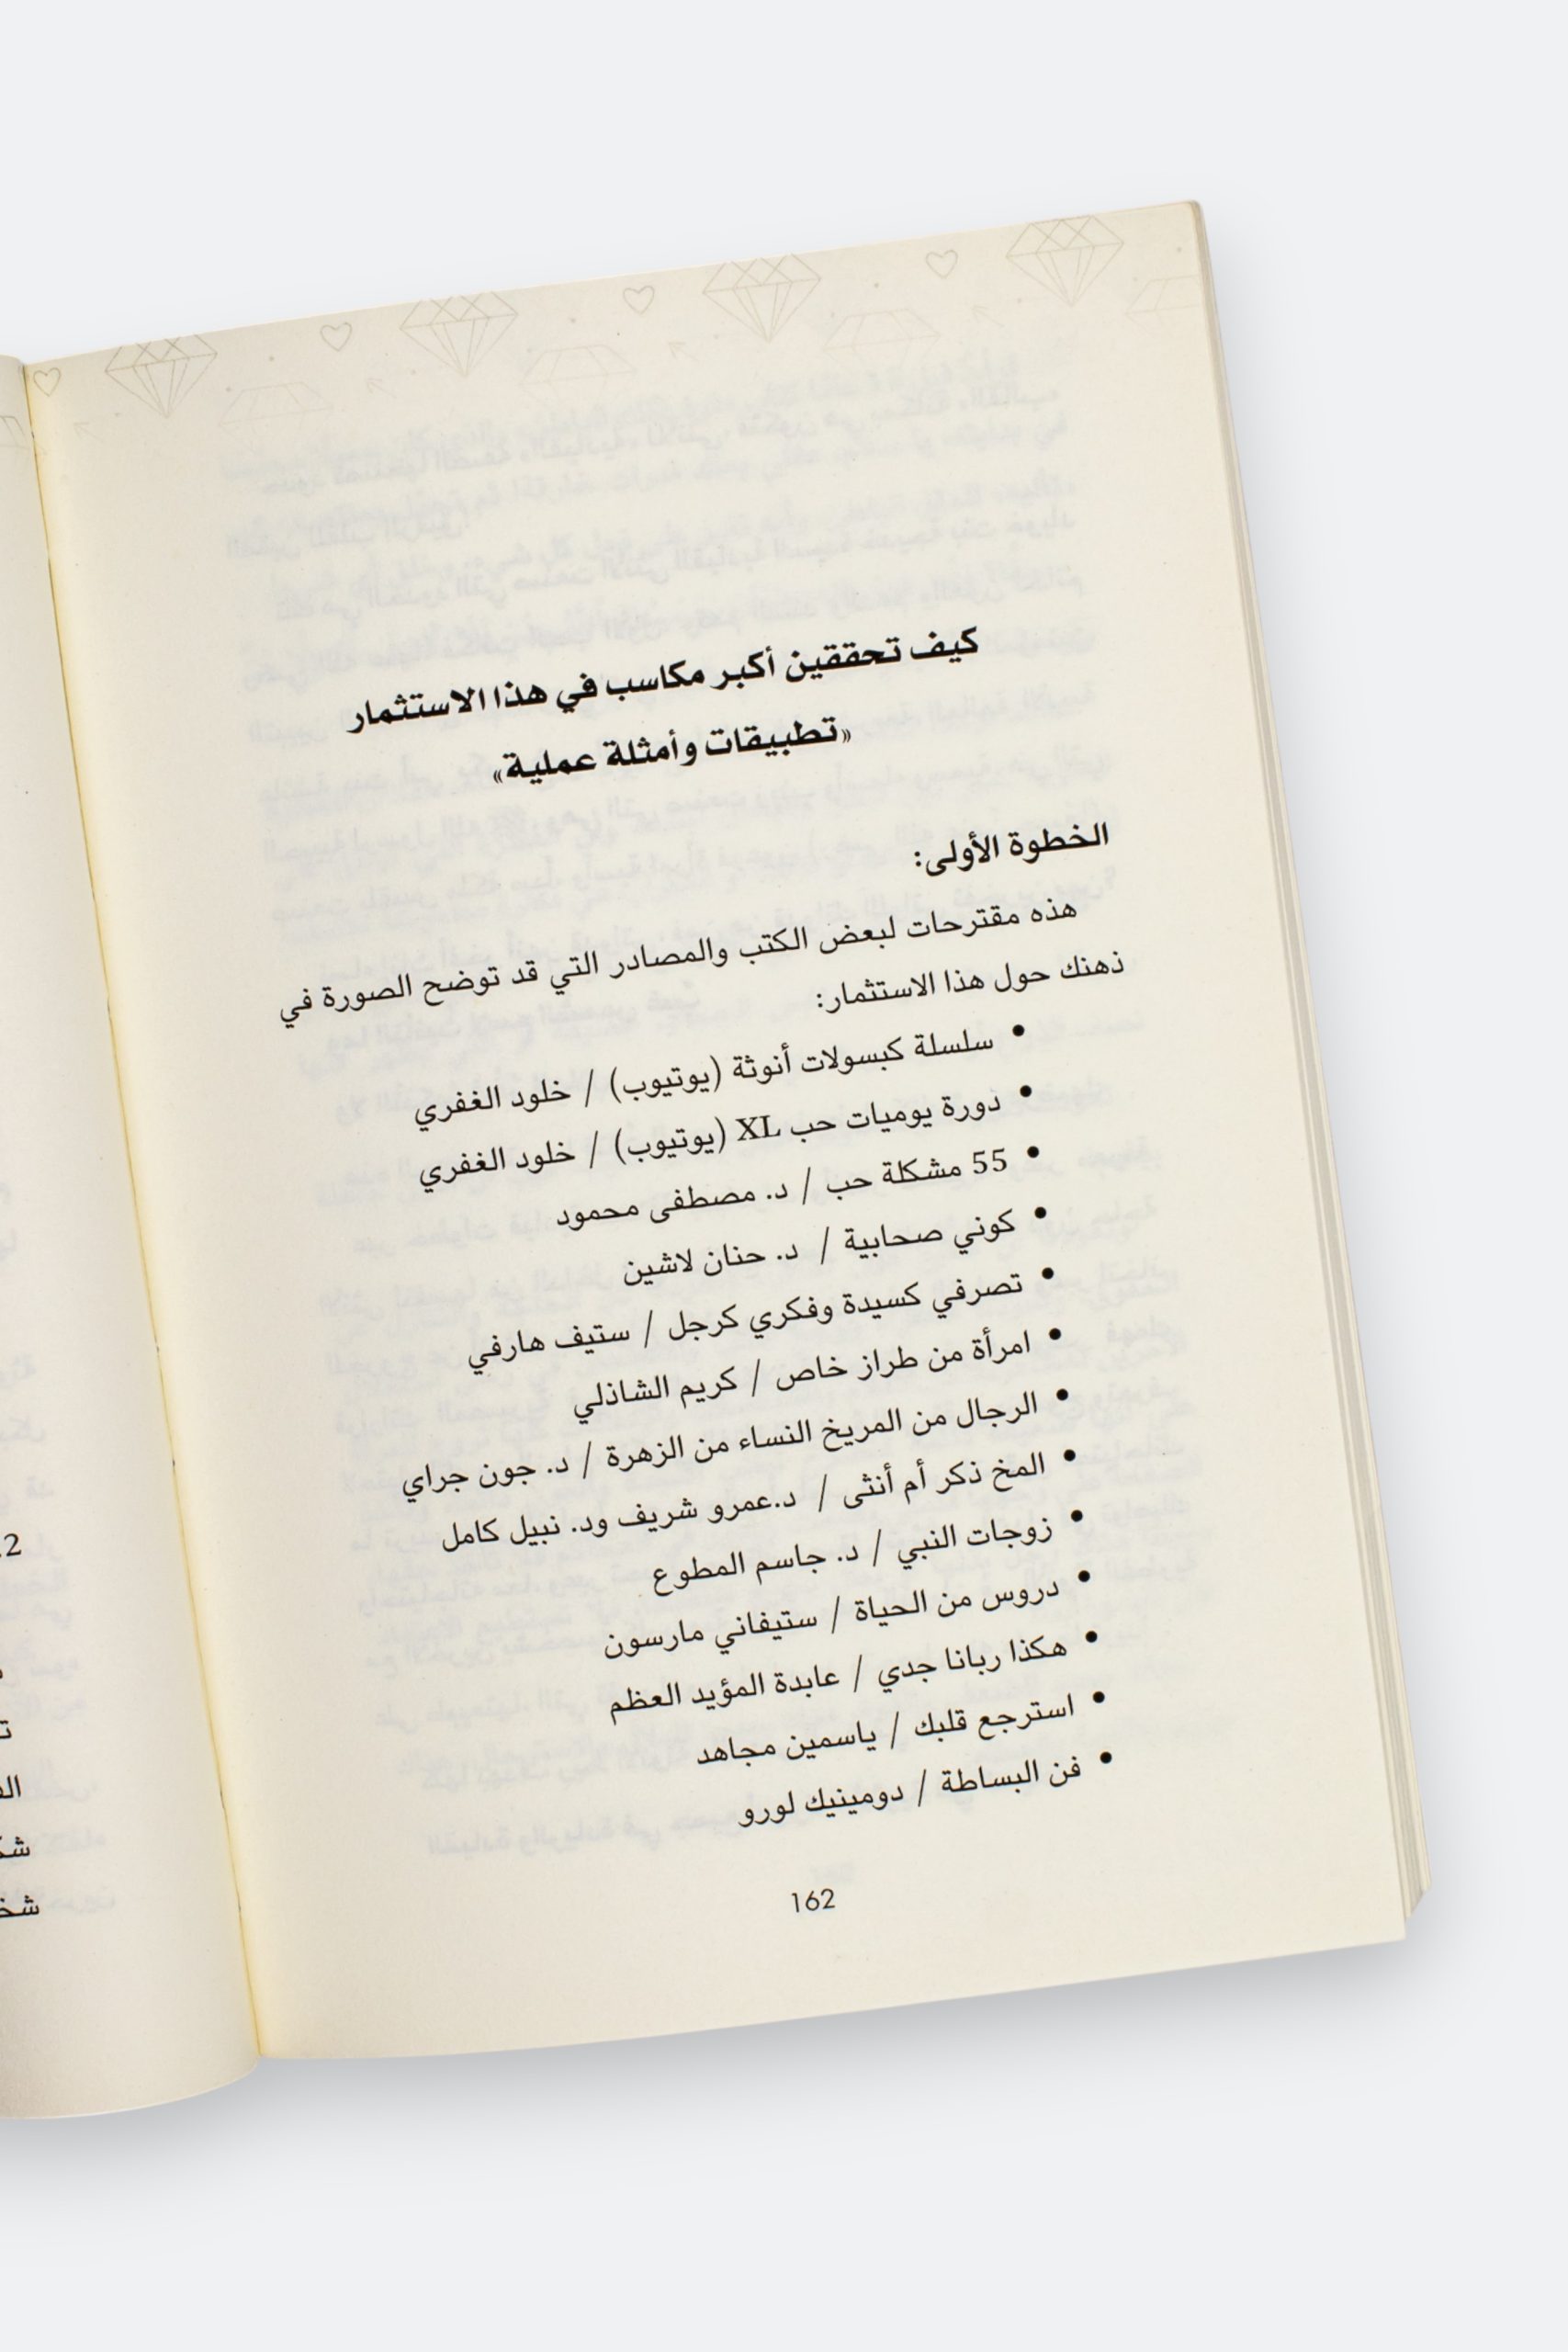 كيف تحققين أكبر مكاسب في هذا الاستثمار
«تطبيقات وأمثلة عملية»
الخطوة الأولى:
هذه مقترحات لبعض الكتب والمصادر التي قد توضح الصورة في
ذهنك حول هذا الاستثمار:
• سلسلة كبسولات أنوثة (يوتيوب) / خلود الغفري
• دورة يوميات حب XL (يوتيوب) / خلود الغفري
• 55 مشكلة حب / د. مصطفى محمود
• كوني صحابية / د. حنان لاشين
• تصرفي كسيدة وفكري كرجل / ستيف هارفي
• امرأة من طراز خاص / كريم الشاذلي
• الرجال من المريخ النساء من الزهرة / د. جون جراي
• المخ ذكر أم أنثى / د.عمرو شريف ود. نبيل كامل
• زوجات النبي / د. جاسم المطوع
• دروس من الحياة / ستيفاني مارسون
• هكذا ربانا جدي / عابدة المؤيد العظم
• استرجع قلبك / ياسمين مجاهد
• فن البساطة / دومينيك لورو
162